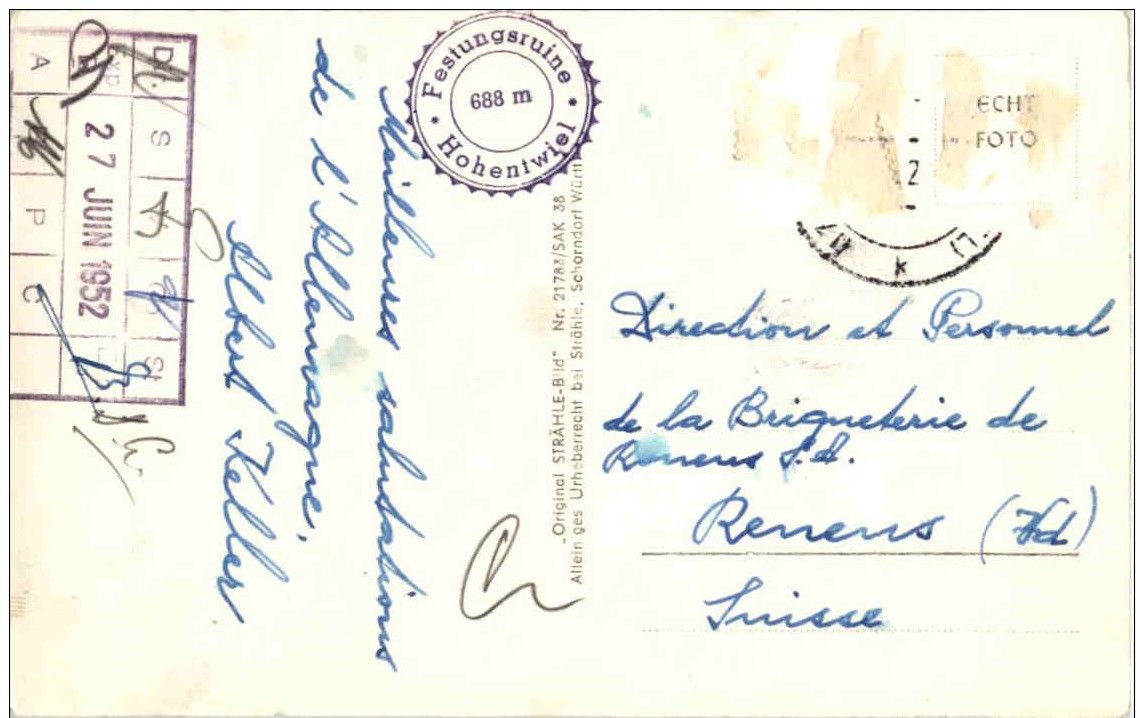 Meilleures salutations
de l'Allemagne,
Albert Keller
Festungsruine
688 m
Hohentwiel
„Original STRÄHLE-Bild" Nr. 21783/SAK 38
Alleiniges Urheberrecht bei Strähle, Schorndorf Württ
ECHT
FOTO
Direction et Personnel
de la Briqueterie de
Renens S.A.
Renens (Vd)
Suisse
27 JUIN 1952
A
P
C